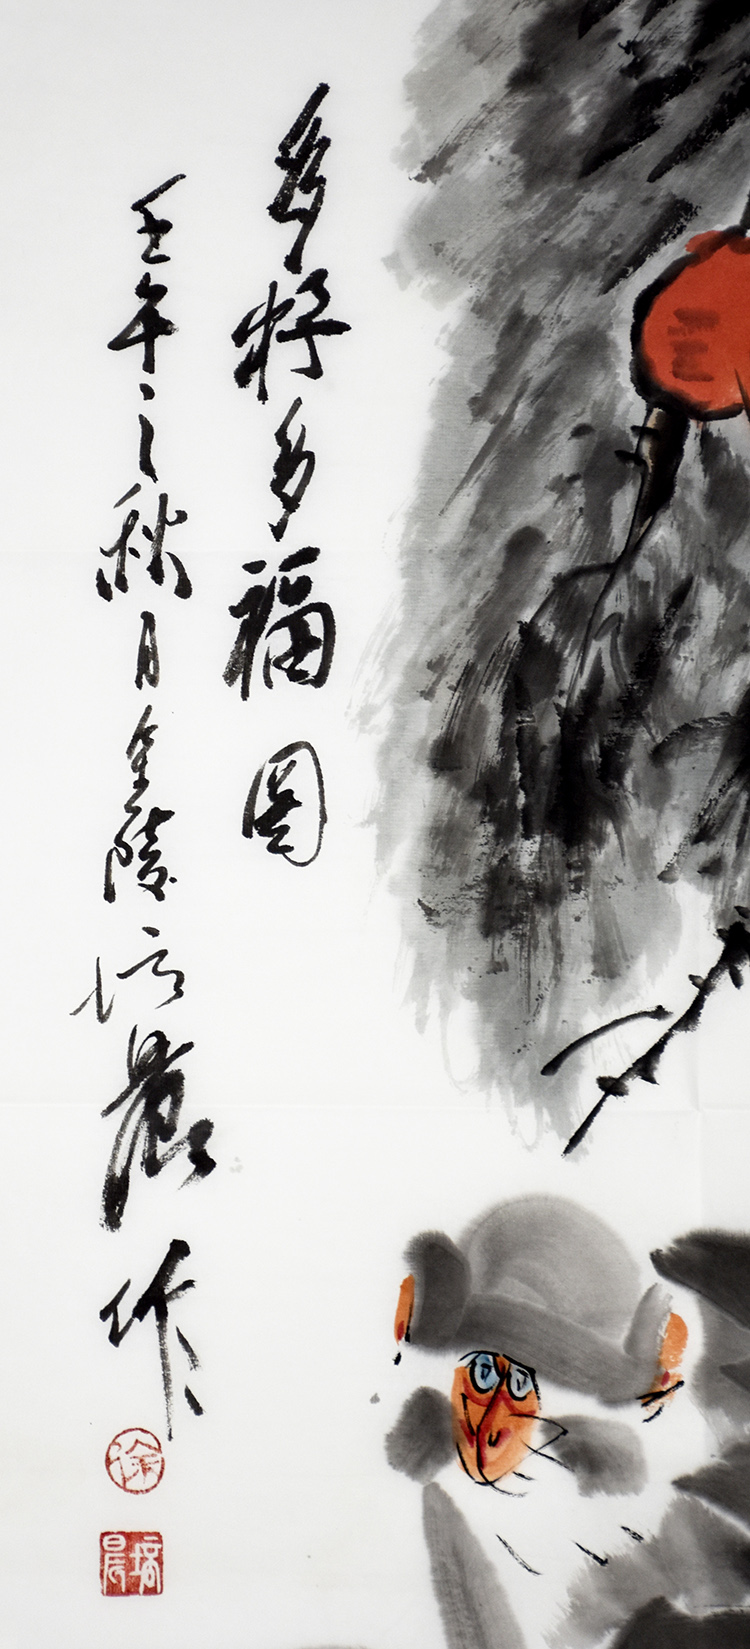 多籽多福图
壬午之秋月金陵培晨作
徐
培晨